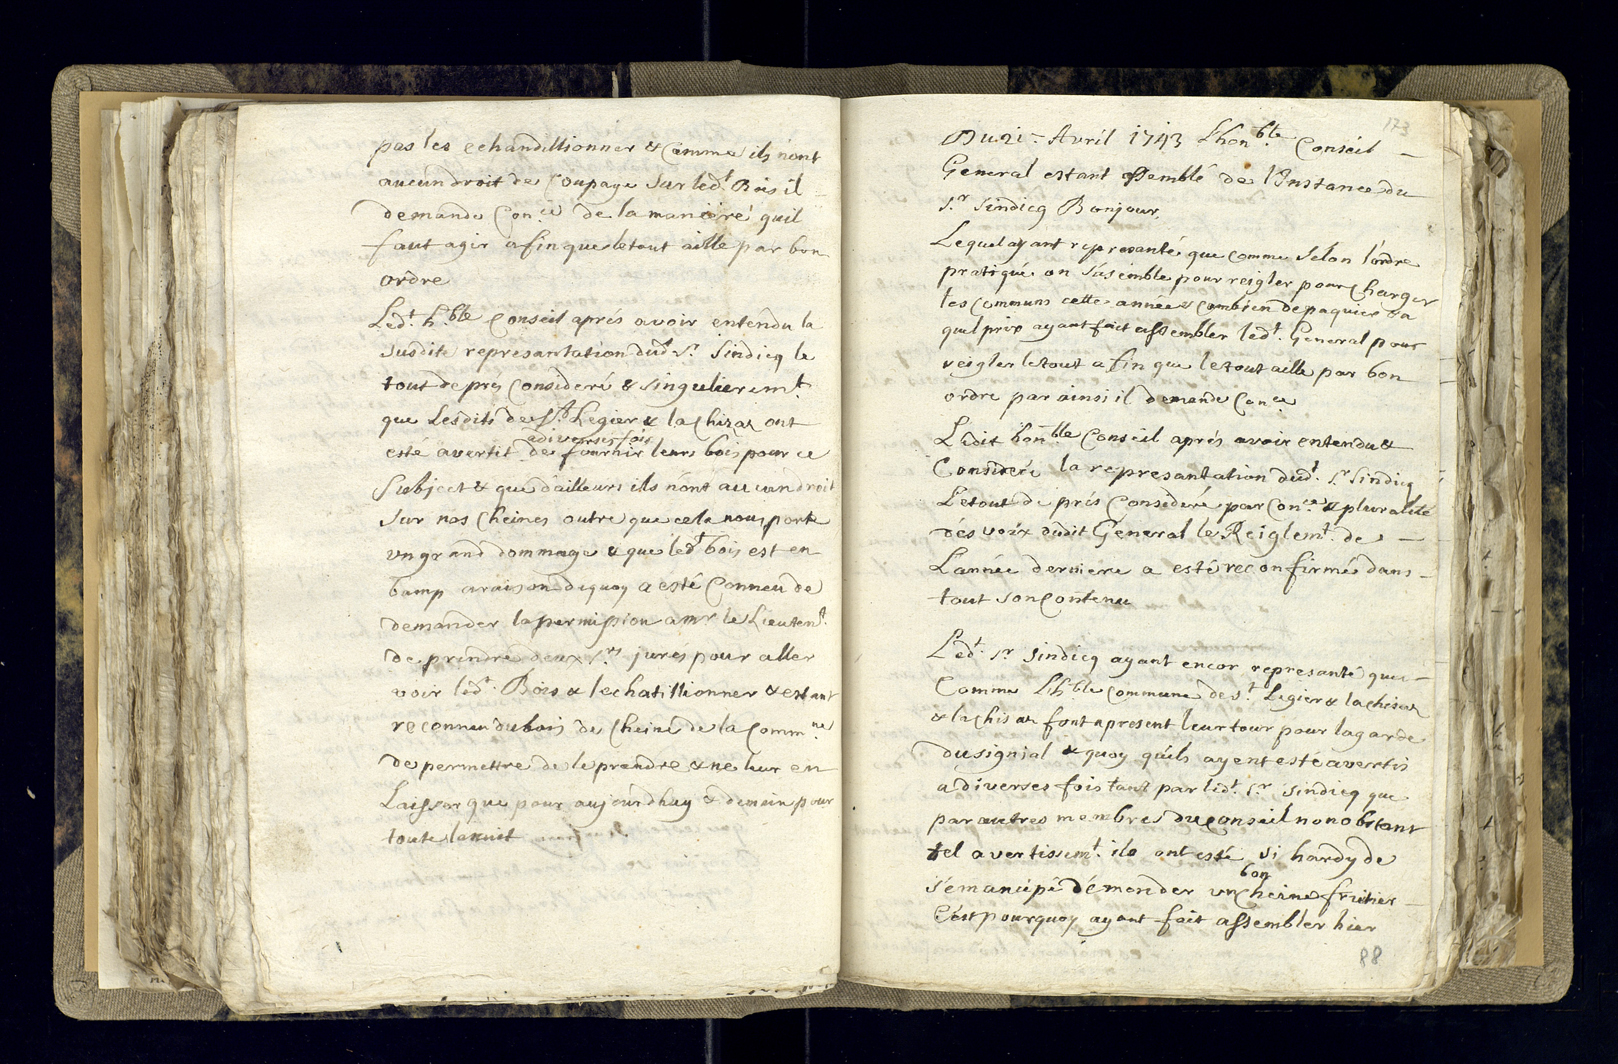 pas les echandillionner & comme ils n'ont
aucun droit de Coupage sur led.t Bois il
demande Con.ce de la maniere quil
faut agir afin que le tout aille par bon
ordre
Led.t h.ble Conseil aprés avoir entendu la
susdite representation dud.t S.r Sindicq le
tout de prés Consideré & singulierem.t
que Lesdits de S.t Legier & la Chisaz ont
esté avertit a diverses fois de fournir leurs bois pour ce
Subject & que d'ailleurs ils n'ont aucun droit
sur nos Cheines outre que cela nous porte
un grand dommage & que led.t bois est en
bamp a raison dequoy a esté Conneu de
demander la permission a mr le Lieuten.t
de prendre deux S.rs jures pour aller
voir led.t Bois & lechatillionner & estant
reconneu du bois de Cheine de la Comm.ne
de permettre de le prendre & ne leur en
Laisser que pour aujourdhuy & demain pour
toute la nuit
173
Du 21 = Avril 1743 L'hon.ble Conseil
General estant assemblé de l'Instance du
S.r Sindicq Bonjour.
Lequel ayant representé que comme Selon l'ordre
pratiqué on s'asemble pour reigler pour Charger
les Communs cette année & combien de paquier & a
quel prix ayant fait assembler led.t General pour
reigler le tout afin que le tout aille par bon
ordre par ainsi il demande Con.ce
Ledit hon.ble Conseil aprés avoir entendu &
Consideré la representation dud.t S.r Sindicq
Le tout de prés Consideré par Con.ce & pluralité
dés voix dudit General le Reiglem.t de
L'année derniere a esté reconfirmée dans
tout son Contenu
Led.t S.r Sindicq ayant encor representé que
Comme L'h.ble Commune de S.t Legier & la chisaz
& la Chisaz font apresent leur tour pour la garde
du signial & quoy qu'ils ayent esté avertis
a diverses fois tant par led.t S.r Sindicq que
par autres membres du Conseil nonobstant
tel avertissem.t ils ont esté si hardy de
s'emancipé d'émonder un bon Cheine fruitier
C'est pourquoy ayant fait assembler hier
88